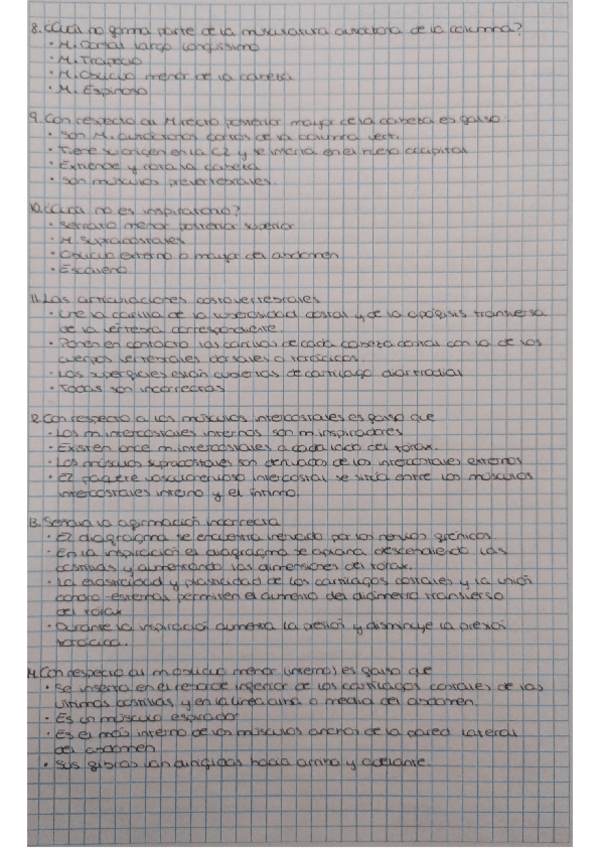 8. ¿Cuál no forma parte de la musculatura autóctona de la columna?
· M. Dorsal largo longuissimo
· M. Trapecio
· M. Oblicuo menor de la cabeza
· M. Espinoso
9. Con respecto al M. recto posterior mayor de la cabeza es falso:
· Son M. autóctonos cortos de la columna vert.
· Tiene su origen en la C2 y se inserta en el hueso occipital
· Extiende y rota la cabeza
· Son músculos prevertebrales.
10. ¿Cuál no es inspiratorio?
· Serrato menor posterior superior
· M. Supracostales
· Oblicuo externo o mayor del abdomen
· Escaleno
11. Las articulaciones costovertebrales
· Une la carilla de la tuberosidad costal y de la apófisis transversa
de la vértebra correspondiente.
· Ponen en contacto las carillas de cada cabeza costal con la de los
cuerpos vertebrales dorsales o torácicos.
· Las superficies están cubiertas de cartílago diartrodial
· Todas son incorrectas
12. Con respecto a los músculos intercostales es falso que
· Los m. intercostales internos son m. inspiradores
· Existen once m. intercostales a cada lado del tórax.
· Los músculos supracostales son derivados de los intercostales externos
· El paquete vasculonervioso intercostal se sitúa entre los músculos
intercostales interno y el íntimo.
13. Señala la afirmación incorrecta
· El diafragma se encuentra inervado por los nervios frénicos.
· En la inspiración el diafragma se aplana descendiendo las
costillas y aumentando las dimensiones del tórax.
· La elasticidad y plasticidad de los cartílagos costales y la unión
condro-esternal permiten el aumento del diámetro transverso
del tórax
· Durante la inspiración aumenta la presión y disminuye la presión
torácica.
14. Con respecto al m. oblicuo menor (interno) es falso que
· Se inserta en el reborde inferior de los cartílagos costales de las
últimas costillas, y en la línea alba o media del abdomen.
· Es un músculo espirador
· Es el más interno de los músculos anchos de la pared lateral
del abdomen
· Sus fibras van dirigidas hacia arriba y adelante.